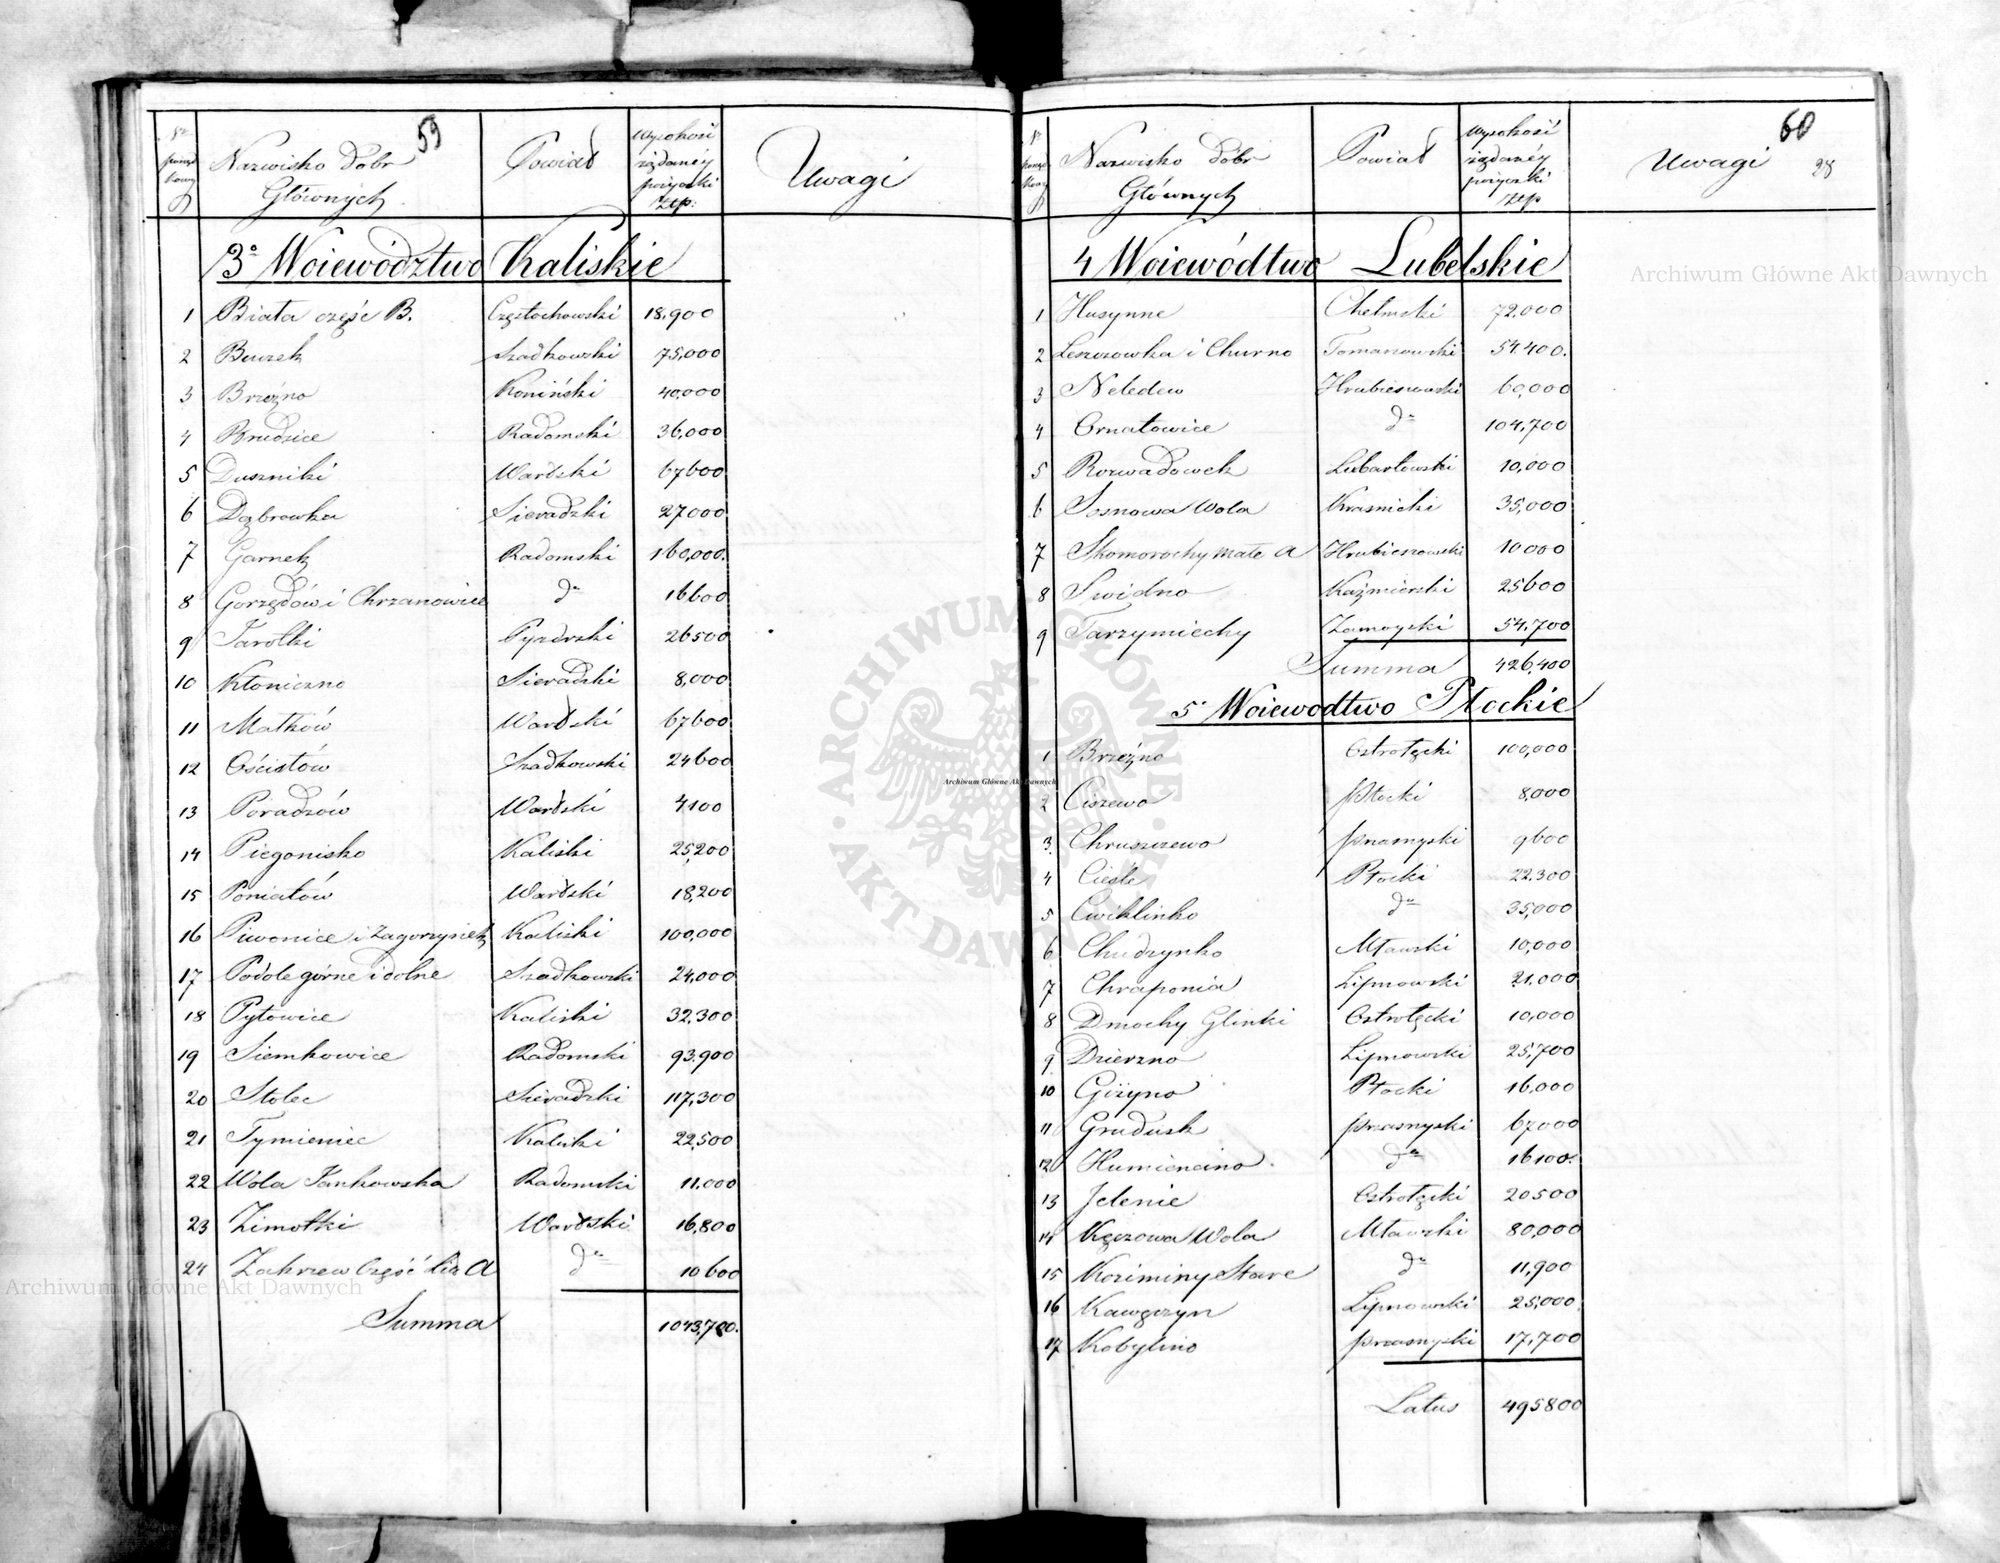 59
Nr porządkowy Nazwisko dóbr Głównych Powiat Wysokość żądanéy pożyczki złp: Uwagi
3° Woiewództwo Kaliskie
1 Biała część B. Częstochowski 18,900
2 Buczek Szadkowski 75,000
3 Brzeźno Koniński 40,000
4 Brudzice Radomski 36,000
5 Duszniki Wartski 67600
6 Dąbrowka Sieradzki 27000
7 Garnek Radomski 160,000.
8 Gorzędów i Chrzanowice do 16600
9 Jarotki Pyzdrski 26500
10 Kłoniczno Sieradzki 8,000
11 Małków Wartski 67600
12 Ościsłów Szadkowski 24600
13 Poradzów Wartski 4100
14 Piegonisko Kaliski 25,200
15 Poniatów Wartski 18,200
16 Piwonice i Zagorzynek Kaliski 100,000
17 Podole górne i dolne Szadkowski 24,000
18 Pytowice Kaliski 32,300
19 Siemkowice Radomski 93,900
20 Stolec Sieradzki 117,300
21 Tymieniec Kaliski 22,500
22 Wola Jankowska Radomski 11.000
23 Zimotki Wartski 16,800
24 Zakrzew Część Lit A do 10600
Summa 1043,700.
60
28
Nr porządkowy Nazwisko dóbr Głównych Powiat Wysokość żądanéy pożyczki złp Uwagi
4 Woiewódtwo Lubelskie
1 Husynne Chełmski 72.000
2 Leszczowka i Churno Tomaszowski 54.400.
3 Neledew Hrubieszowski 60,000
4 Ornatowice do 104,700
5 Rozwadowek Lubartowski 10,000
6 Sosnowa Wola Krasnicki 35,000
7 Skomorochy małe A Hrubieszowski 10000
8 Swidno Kaźmierski 25600
9 Tarzymiechy Zamoyski 54,700
Summa 426,400
5° Woiewodtwo Płockie
1 Brzeźno Ostrołęcki 100,000
2 Ciszewo Płocki 8,000
3. Chruszczewo Przasnyski 9600
4 Cieśle Płocki 22.300
5 Cwiklinko do 35,000
6 Chudzynko Mławski 10,000
7 Chraponia Lipnowski 21.000
8 Dmochy Glinki Ostrołęcki 10,000
9 Dzierzno Lipnowski 25,700
10 Giżyno Płocki 16,000
11 Grudusk Przasnyski 67000
12 Humiencino do 16100.
13 Jelenie Ostrołęcki 20500
14 Kęczowa Wola Mławski 80,000
15 Koziminy Stare do 11,900
16 Kawęczyn Lipnowski 25,000
17 Kobylino Przasnyski 17,700
Latus 495800
Archiwum Główne Akt Dawnych
Archiwum Główne Akt Dawnych
Archiwum Główne Akt Dawnych
ARCHIWUM GŁÓWNE AKT DAWNYCH